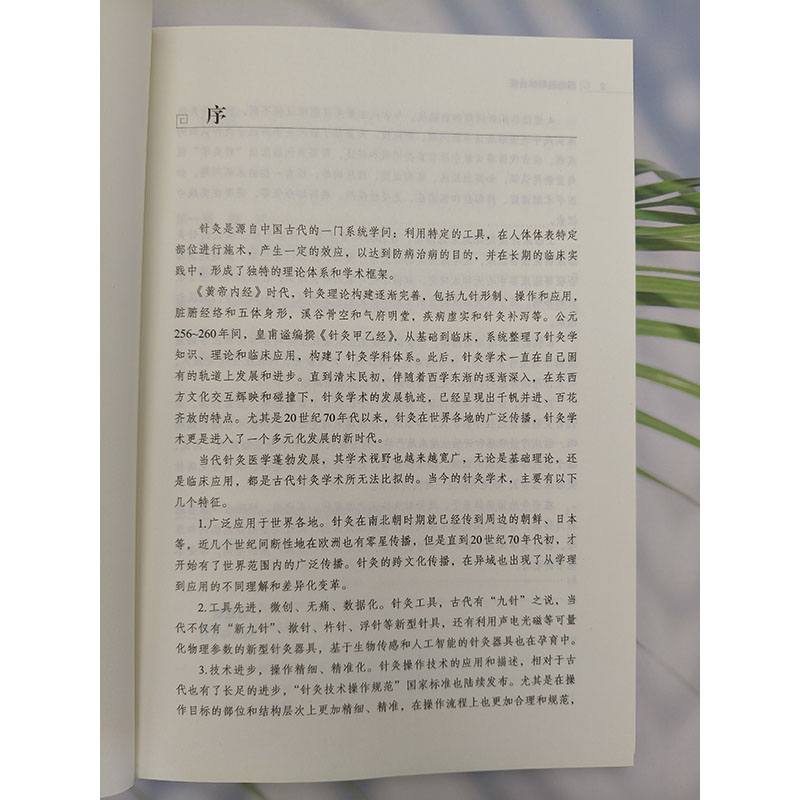 序
针灸是源自中国古代的一门系统学问：利用特定的工具，在人体体表特定
部位进行施术，产生一定的效应，以达到防病治病的目的，并在长期的临床实
践中，形成了独特的理论体系和学术框架。
《黄帝内经》时代，针灸理论构建逐渐完善，包括九针形制、操作和应用，
脏腑经络和五体身形，溪谷骨空和气府明堂，疾病虚实和针灸补泻等。公元
256~260年间，皇甫谧编撰《针灸甲乙经》，从基础到临床，系统整理了针灸学
知识、理论和临床应用，构建了针灸学科体系。此后，针灸学术一直在自己固
有的轨道上发展和进步。直到清末民初，伴随着西学东渐的逐渐深入，在东西
方文化交互辉映和碰撞下，针灸学术的发展轨迹，已经呈现出千帆并进、百花
齐放的特点。尤其是20世纪70年代以来，针灸在世界各地的广泛传播，针灸学
术更是进入了一个多元化发展的新时代。
当代针灸医学蓬勃发展，其学术视野也越来越宽广，无论是基础理论，还
是临床应用，都是古代针灸学术所无法比拟的。当今的针灸学术，主要有以下
几个特征。
1.广泛应用于世界各地。针灸在南北朝时期就已经传到周边的朝鲜、日本
等，近几个世纪间断性地在欧洲也有零星传播，但是直到20世纪70年代初，才
开始有了世界范围内的广泛传播。针灸的跨文化传播，在异域也出现了从学理
到应用的不同理解和差异化变革。
2.工具先进，微创、无痛、数据化。针灸工具，古代有“九针”之说，当
代不仅有“新九针”、揿针、杵针、浮针等新型针具，还有利用声电光磁等可量
化物理参数的新型针灸器具，基于生物传感和人工智能的针灸器具也在孕育中。
3.技术进步，操作精细、精准化。针灸操作技术的应用和描述，相对于古
代也有了长足的进步，“针灸技术操作规范”国家标准也陆续发布。尤其是在操
作目标的部位和结构层次上更加精细、精准，在操作流程上也更加合理和规范，